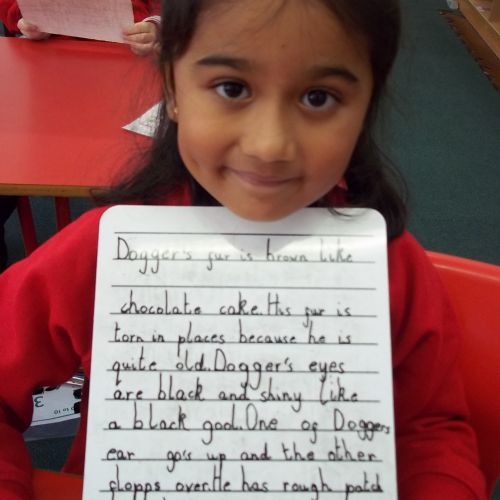 Dogger's fur is brown like
chocolate cake. His fur is
torn in places because he is
quite old. Dogger's eyes
are black and shiny like
a black good. One of Doggers
ear go's up and the other
flopps over. He has rough patch
3